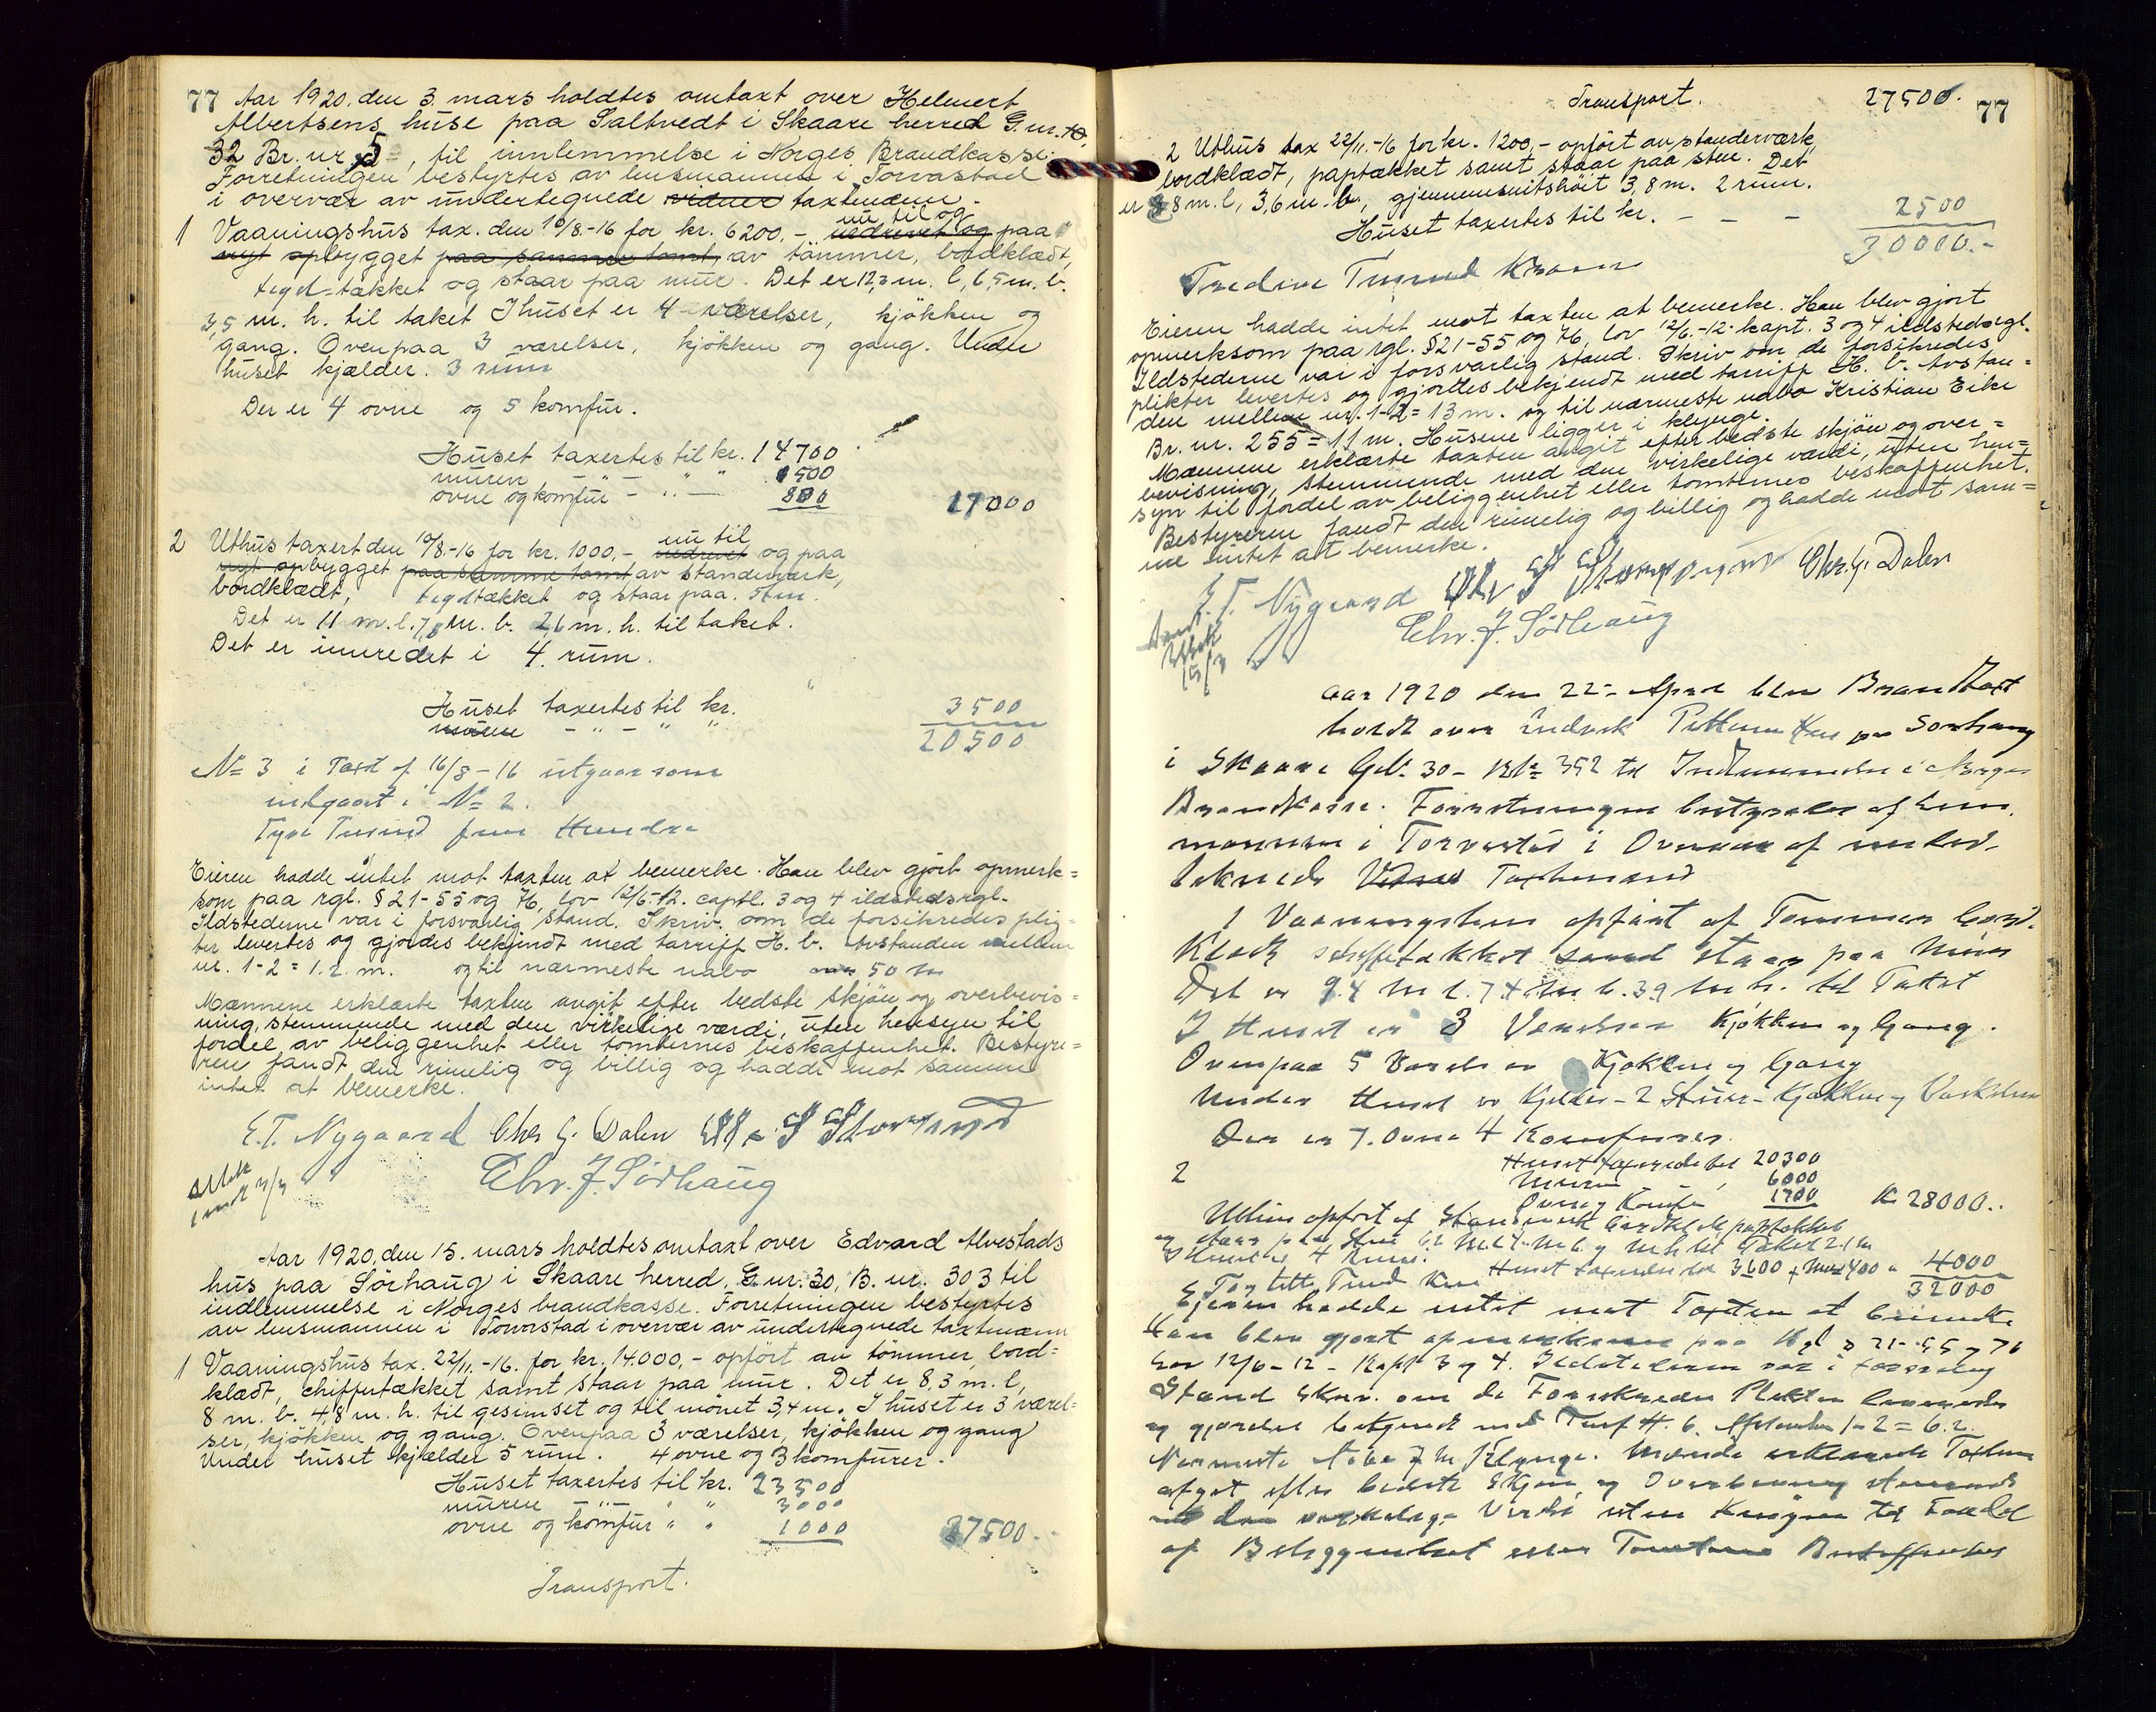 77 Aar 1920. den 3. mars holdtes omtaxt over Helmert
Albertsens huse paa Saltvedt i Skaare herred G. nr.
32 Br. nr 5, til innlemmelse i Norges Brandkasse.
Forretningen bestyrtes av lensmannen i Torvastad
i overvær av undertegnede vidner taxtmænn.
nu til og
1 Vaaningshus tax. den 10/8.-16 for kr. 6200,- nedrevet og paa
nyt opbygget paa samme tomt, av tømmer, bordklædt,
tegl-tækket og staar paa mur. Det er 12,3 m. l, 6,5 m. b.
3,5 m. h. til taket I huset er 4 værelser, kjøkken og
gang. Ovenpaa 3 værelser, kjøkken og gang. Under
huset kjælder. 3 rum
Der er 4 ovne og 5 komfur.
Huset taxertes til kr. 14700
muren - " - " 1500
ovne og komfur - " - 800 17000
nu til
2 Uthus taxert den 10/8.-16 for kr. 1000,- nedrevet og paa
nyt opbygget paa samme tomt av standerværk,
bordklædt, tegltækket og staar paa. sten.
Det er 11 m. l. 7,8 m. b. 2,6 m. h. til taket.
Det er innredet i 4. rum.
Huset taxertes til kr. 3500
muren - " - " " 20500
No 3 i Taxt af 16/8-16 utgaar som
indgaat i No 2.
Tyve Tusind fem Hundre
Eieren hadde intet mot taxten at bemerke. Han blev gjort opmerk=
som paa rgl. § 21-55 og 76, lov 12/6-12. captl. 3 og 4 ildstedsrgl.
Ildstederne var i forsvarlig stand. Skriv. om de forsikredes plig=
ter levertes og gjordes bekjendt med tarriff H. b. Avstanden mellem
nr. 1-2 = 1.2 m. og til nærmeste nabo 50 m
Mænnene erklærte taxten avgit efter bedste skjøn og overbevis=
ning, stemmende med den virkelige værdi, uten hensyn til
fordel av beliggenhet eller tomternes beskaffenhet. Bestyre=
ren fandt den rimelig og billig og hadde mot samme
intet at bemerke.
E. T. Nygaard Chr G. Dalen
Chr. J. Sørhaug
Aar 1920, den 15. mars holdtes omtaxt over Edvard Alvestads
hus paa Sörhaug i Skaare herred, G. nr. 30, B. nr. 303 til
indlemmelse i Norges brandkasse. Forretningen bestyrtes
av lensmannen i Torvastad i overvær av undertegnede taxtmænn
1 Vaaningshus tax. 22/11.-16. for kr. 14.000,- opført av tömmer, bord=
klædt, chiffertækket samt staar paa mur. Det er 8,3 m. l,
8 m. b. 4,8 m. h. til gesimset og til mönet 3,4 m. I huset er 3 værel=
ser, kjøkken og gang. Ovenpaa 3 værelser, kjøkken og gang
Under huset kjælder 5 rum. 4 ovne og 3 komfurer.
Huset taxertes til kr. 23500
muren - " - " " 3000
ovne og komfur " " 1000 27500.-
Transport.
Transport. 27500.- 77
2 Uthus tax 22/11.-16 for kr. 1200,- opført av standerværk,
bordklædt, paptækket samt staar paa sten. Det
er 8 m. l, 3,6 m. b, gjennemsnitshöit 3,8 m. 2 rum.
Huset taxertes til kr. - - - 2500
30000.-
Tredive Tusind Kroner
Eieren hadde intet mot taxten at bemerke. Han blev gjort
opmerksom paa rgl. § 21-55 og 76, lov 12/6.-12. kapt. 3 og 4 ildstedsrgl.
Ildstederne var i forsvarlig stand. Skriv om de forsikredes
plikter levertes og gjordtes bekjendt med tarriff H. b. Avstan=
den mellem nr. 1-2 = 13 m. og til nærmeste nabo Kristian Eike
Br. nr. 255 = 11 m. Husene ligger i klynge.
Mænnene erklærte taxten avgit efter bedste skjön og over=
bevisning, stemmende med den virkelige værdi, uten hen=
syn til fordel av beliggenhet eller tomternes beskaffenhet.
Bestyreren fandt den rimelig og billig og hadde mot sam=
me intet at bemerke.
E. T. Nygaard Chr. G. Dalen
Chr. J. Sörhaug
Aar 1920 den 22- April blev Brandtaxt
holdt over Hus paa Sörhaug
i Skaare G.No. 30- B.No 352 til Indlemmelse i Norges
Brandkasse. Forretningen bestyredes af Lens
manden i Torvestad i Overvær af under-
tegnede Vidner Taxtmænd
1 Vaaningshus opfört af Tömmer bord
klædt skiffertækket samt staar paa Mur
Det er 9.4 M l. 7.4 M. b. 3.9 M h. til Taket
I Huset er 3 Værelser Kjøkken og Gang.
Ovenpaa 5 Værelser Kjøkken og Gang
Under Huset er Kjelder- 2 Stuer- Kjøkken og Vaskehus
Der er 7. Ovne 4 Komfurer.
Huset taxeredes til 20300
Muren " 6000
Ovne og Komfur 1700 Kr 28000..
2
Uthus opfört af Standerverk bordklædt paptækket
og staar paa Sten M l M b. og M h til Taket 2.1 m
I Huset er 4 Rum.
Huset taxeredes til 3600 + Mur 400 " 4000
32000
To og tretti Tusind Kroner
Ejeren hadde intet mot Taxten at bemerke
Han blev gjort opmerksom paa Rgl § 21-55 og 76
Lov 12/6-12- Kapt 3 og 4. Ildstederne var i forsvarlig
Stand Skriv. om de Forsikredes Plikter leveredes
og gjordes bekjendt med Tarif H. b. Afstanden 1-2 = 6.2.
Nærmeste Nabo 7 M. Klynge. Mændene erklærede Taxten
afgit efter bedste Skjön og Overbevisning stemmende
med den virkelige Verdi uten Hensyn til Fordel
af Beliggenhet eller Tomternes Beskaffenhet